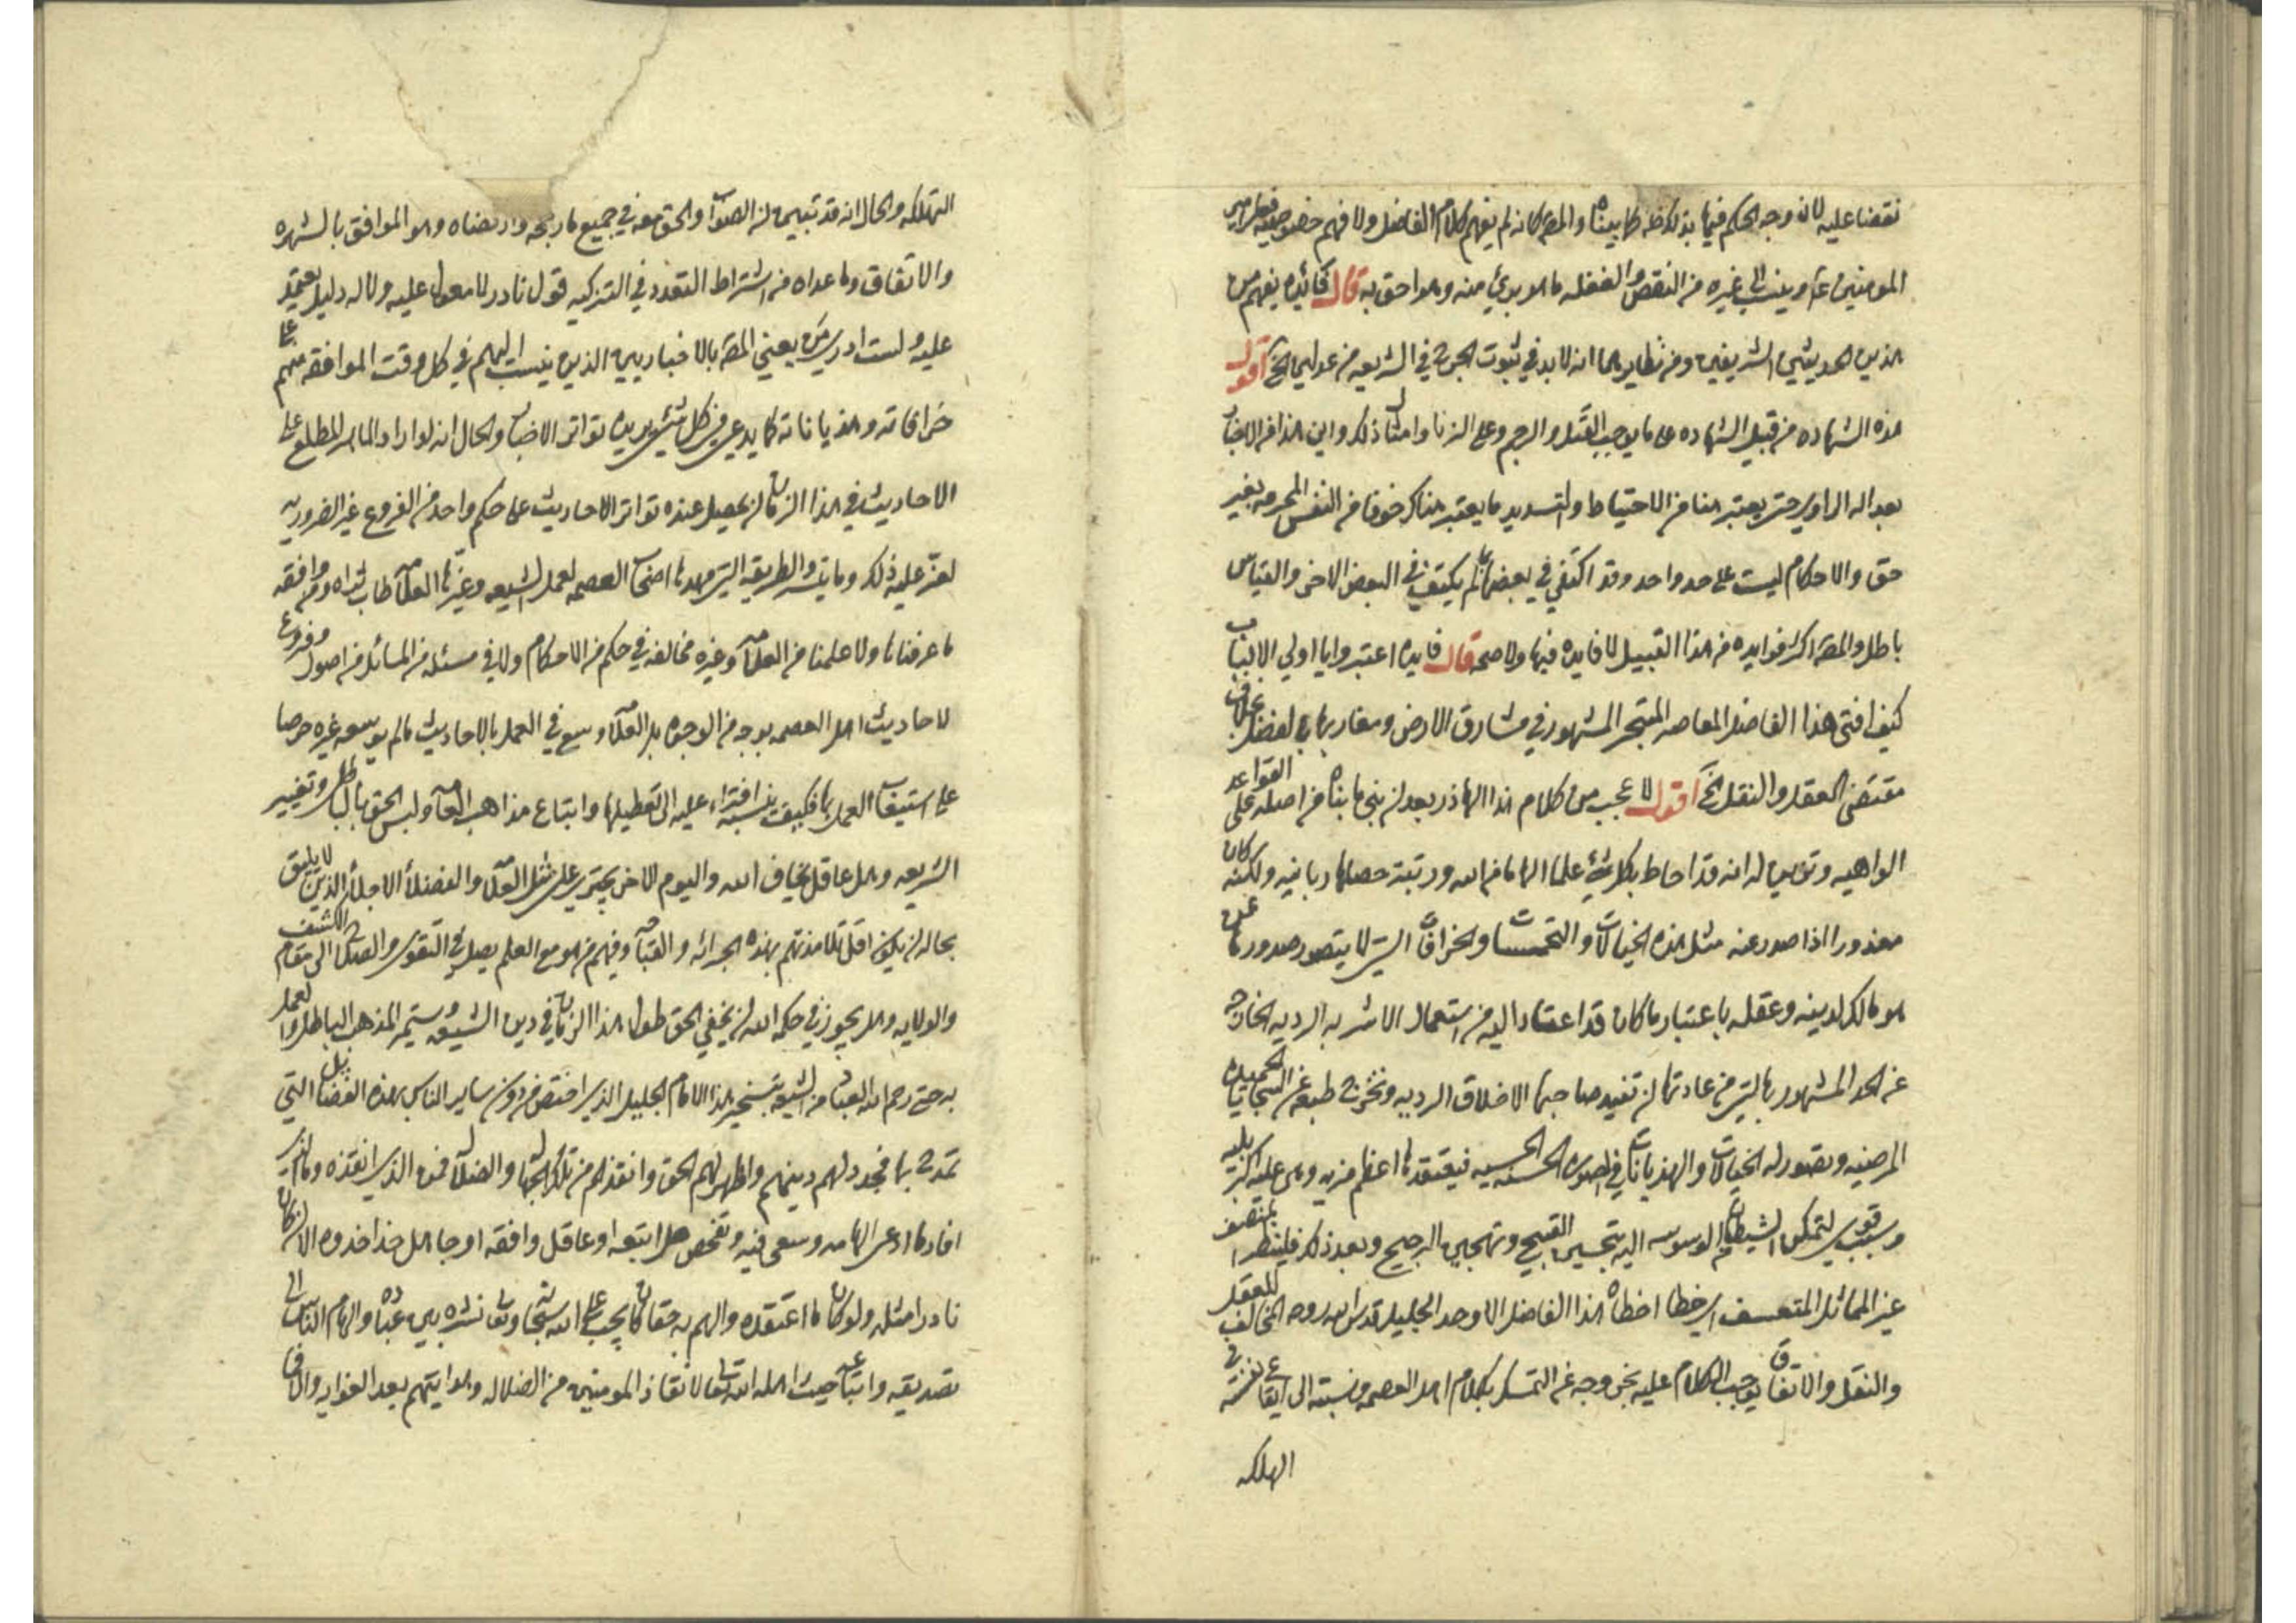 نقضا عليه لان وجه الحكم فيها بذلك ظه كما بيناه والمص كانه لم يفهم كلام الفاضل ولا فهم خصوصيه فعل امير
المومنين ع م وينسب الى غيره من النقص والغفله ما هو بري منه وهو احق به قال فائده يفهم من
هذين الحديثين الشريفين ومن نظايرهما انه لابد في ثبوت الجرح في الشريعه من عدلين الخ اقول
هذه الشهاده من قبيل الشهاده على ما يوجب القتل والرجم وعلى الزنا وامثال ذلك واين هذا من الاخبار
بعداله الراوي حتى يعتبر هنا من الاحتياط والتسديد ما يعتبر هناك خوفا من النفس المحرمه بغير
حق والاحكام ليست على حد واحد وقد اكتفي في بعضها بما لم يكتف في البعض الاخر والقياس
باطل والمص اكثر فوايده من هذا القبيل لا فايده فيها ولا صحه قال فايده اعتبروا يا اولي الالباب
كيف افتى هذا الفاضل المعاصر المتبحر المشهور في مشارق الارض ومغاربها بالفضل بخلاف
مقتضى العقل والنقل الخ اقول لا عجب من كلام هذا الهاذر بعد ان بنى ما بناه من اصله على القواعد
الواهيه وتوهم انه قد احاط بكل شئ علما الهاما من الله ورتبة حصلها ربانيه ولكنه كان
معذورا اذا صدر عنه مثل هذه الخيالات والتخمينات والخرافات التي لا يتصور صدورها عمن
هو مالك لدينه وعقله باعتبار ما كان قد اعتاد اليه من استعمال الاشربه الرديه الخارجه
عن الحد المشهور بالتي من عادتها ان تفيد صاحبها الاخلاق الرديه وتخرج طبعه عن السجايا الجميله
المرضيه وتصور له الخيالات والهذيانات في الصوره الحسنه الحسيه فيعتقدها اعظم مزيه وهي عليه اكبر بليه
وسبب قوي لتمكن الشيطان في الوسوسه اليه بتحسين القبيح وتهجين الرجيح وبعد ذلك فلينظر المنصف
غير المائل المتعسف اي خطا اخطاه هذا الفاضل الاوحد الجليل قدس الله روحه المخالف للعقل
والنقل والاتفاق يوجب الكلام عليه بخروجه عن التمسك بكلام اهل العصمه ونسبته الى ايقاع نفسه في
الهلكه
التهلكه والحال انه قد تبين ان الصواب والحق معه في جميع ما رجحه وارتضاه وهو الموافق بالشهره
والاتفاق وما عداه من اشتراط التعدد في التزكيه قول نادر لا معول عليه ولا له دليل يعتمد
عليه ولست ادري من يعني المص بالاخباريين الذين ينسب اليهم في كل وقت الموافقه منهم على
خرافاته وهذياناته كما يدعي في كل شئ يريده تواتر الاخبار والحال انه لو اراد الماهر المطلع على
الاحاديث في هذا الزمان ان يحصل عنده تواتر الاحاديث على حكم واحد من الفروع غير الضروريه
لعز عليه ذلك وما يتسر والطريقه التي مهدها اصحاب العصمه لعمل الشيعه وغيرها العلامه طاب ثراه ومن وافقه
ما عرفناها ولا علمنا من العلامه وغيره مخالفه في حكم من الاحكام ولا في مسئله من المسائل من اصول وفروع
لاحاديث اهل العصمه بوجه من الوجوه بل العلامه وسع في العمل بالاحاديث ما لم يوسعه غيره حرصا
على استيفاء العمل بها فكيف ينسبه افتراء عليه الى تعطيلها واتباع مذاهب العامه ولبس الحق بالباطل وتغيير
الشريعه وهل عاقل يخاف الله واليوم الاخر يجتري على مثل العلامه والفضلاء الاجلاء الذين لا يليق
بحاله ان يكون اقل تلامذتهم بهذه الجرائه والقباحه وفيهم من هو مع العلم يصل في التقوى والصلاح الى مقام الكشف
والولايه وهل يجوز في حكم الله ان يخفي الحق طول هذا الزمان في دين الشيعه ويستمر المذهب الباطل والعمل
به حتى رحم الله العباد من الشيعه بتسخير هذا الامام الجليل الذي اختص من دون ساير الناس بهذه الفضايل التي
تمدح بها فجدد لهم دينهم واظهر لهم الحق وانقذهم من تلك الجهاله والضلاله فمن الذي انقذه وما الذي
افاد ما ادعى الهامه وسعى فيه وتفحص هل اتبعه او عاقل وافقه او جاهل خذا خذوه الا ان كان
نادرا مثله ولو كان ما اعتقده والهم به حقا كان يجب على الله سبحانه وتعالى نشره بين عباده والهام الناس الى
تصديقه واتباعه حيث اهله الله تعالى لانقاذ المومنين من الضلاله وهدايتهم بعد الغوايه والا في